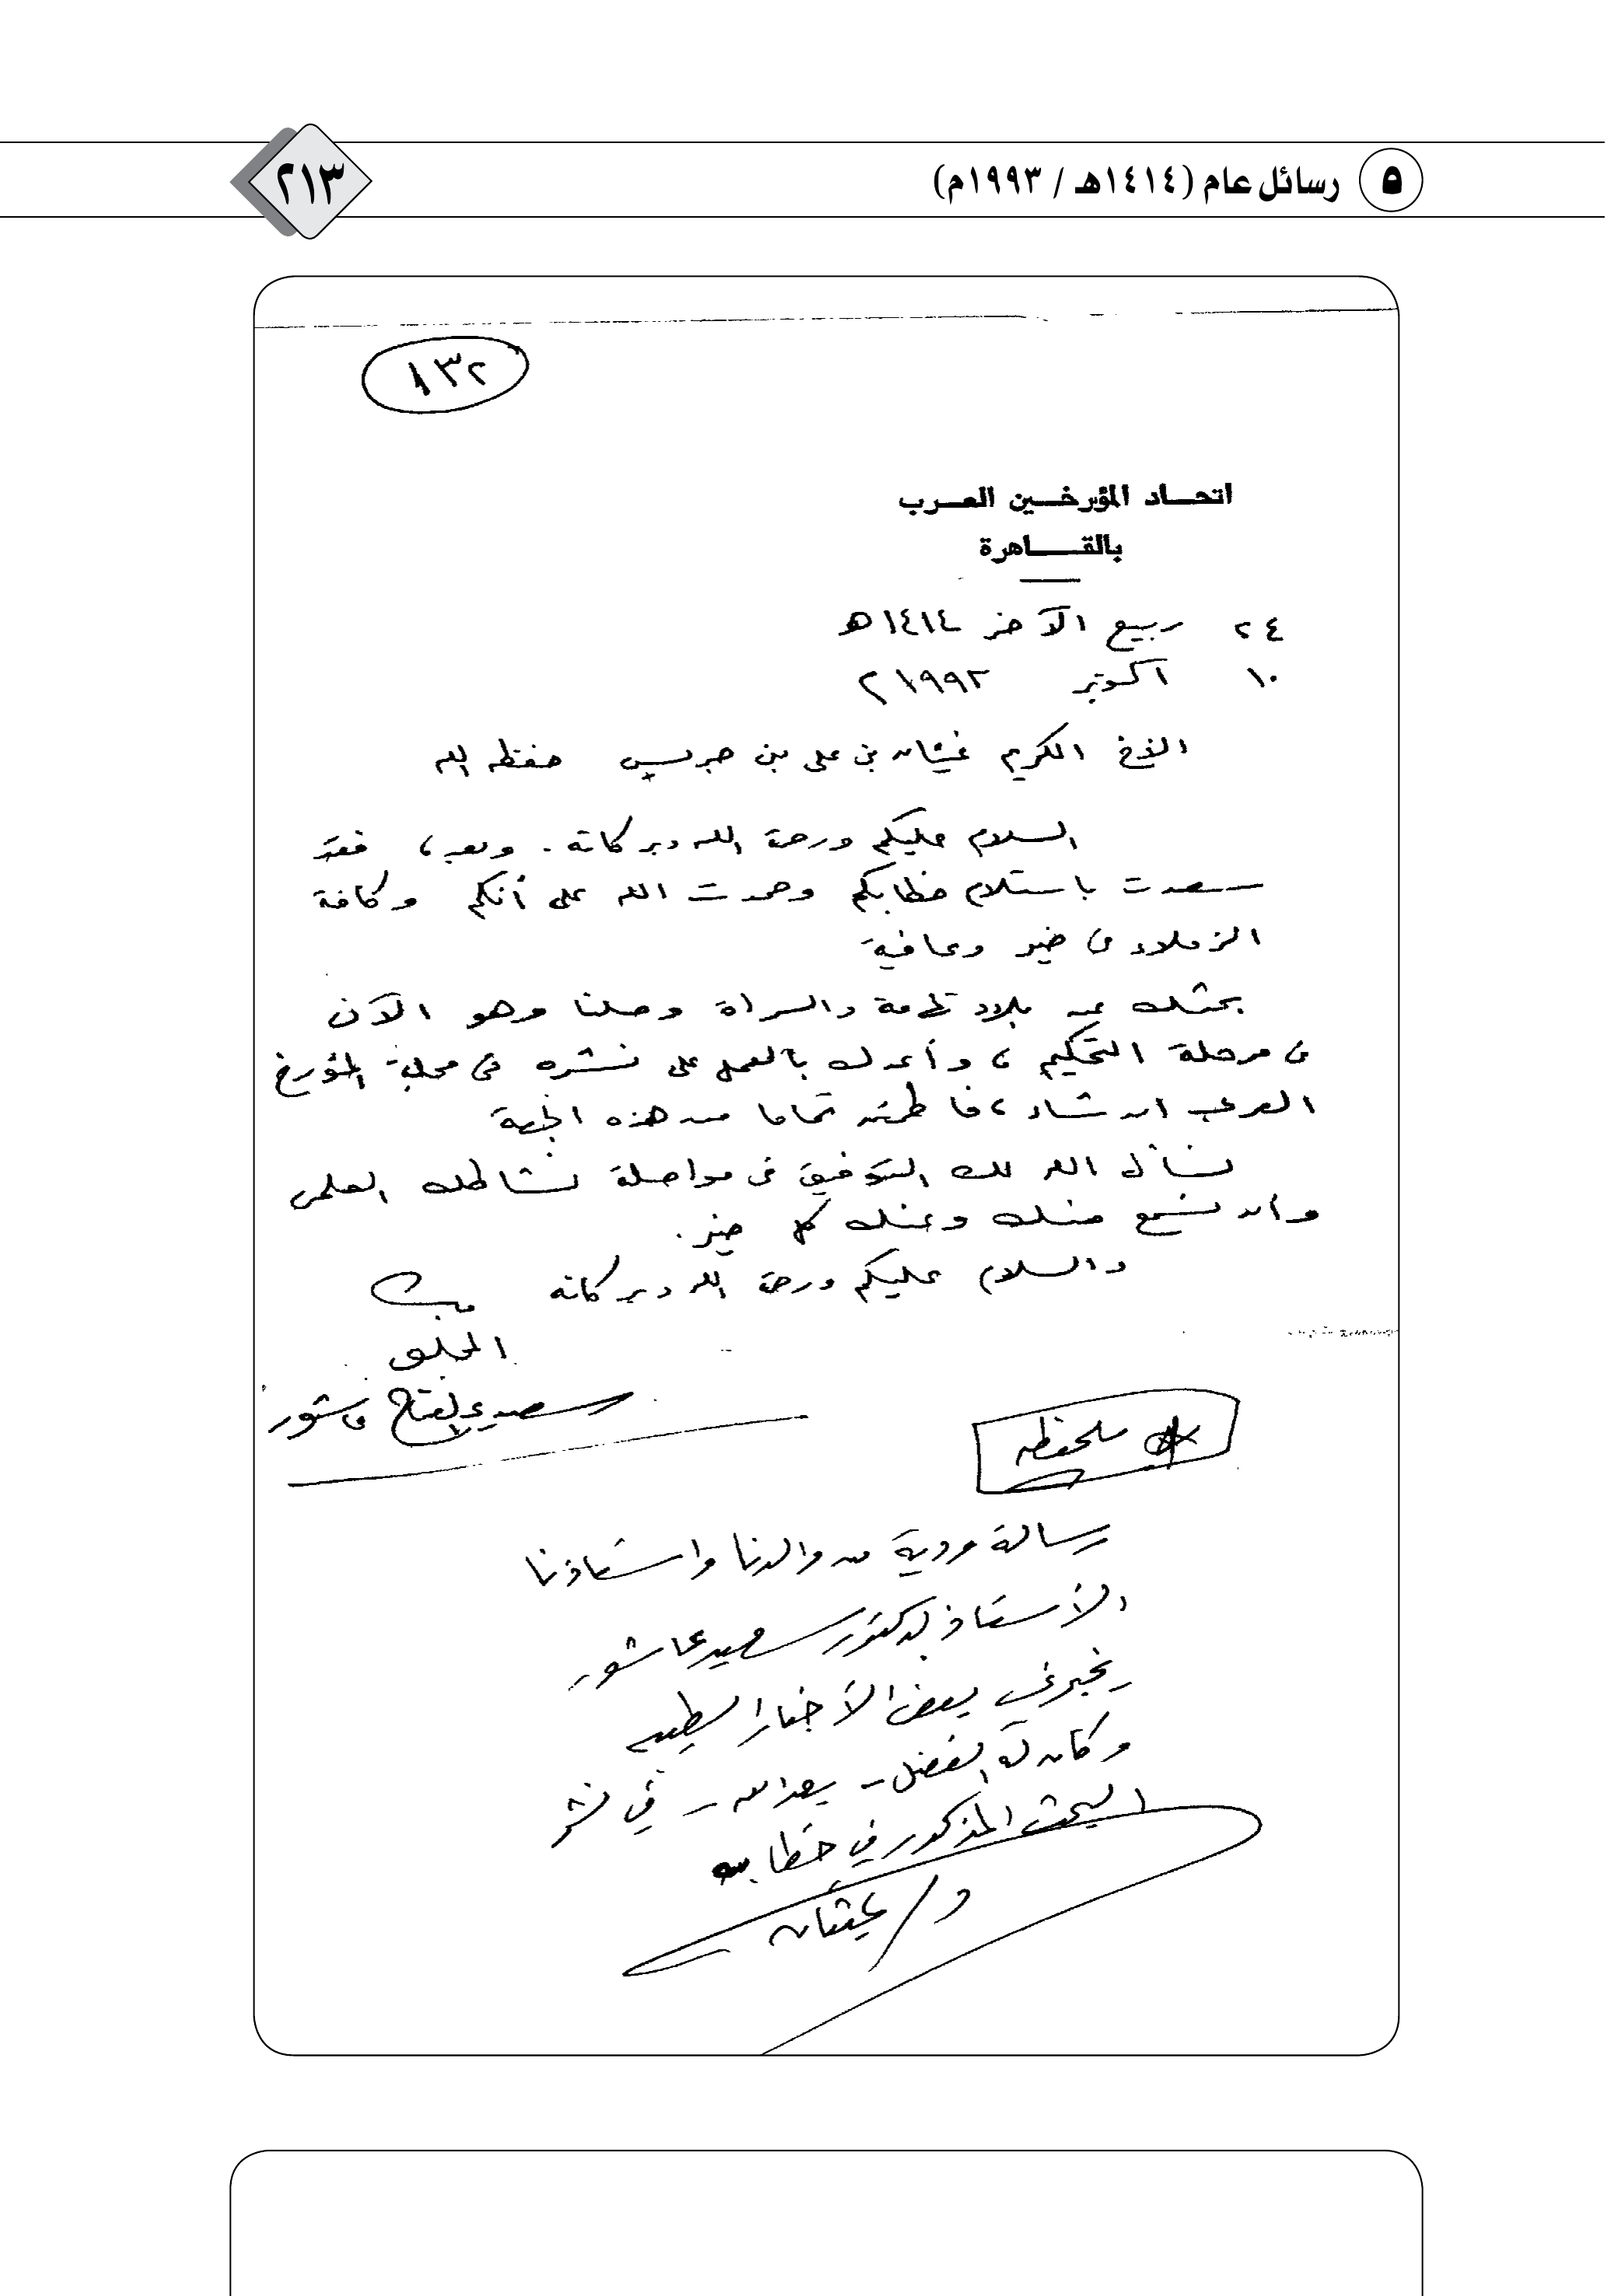 ٥ رسائل عام (١٤١٤هـ / ١٩٩٣م)
٢١٣
١٣٢
اتحاد المؤرخين العرب
بالقاهرة
٢٤ ربيع الآخر ١٤١٤ه
١٠ أكتوبر ١٩٩٣م
الأخ الكريم غيثان بن على بن جريس حفظه الله
السلام عليكم ورحمة الله وبركاته . وبعد، فقد
سعدت باستلام خطابكم وحمدت الله على أنكم وكافة
الزملاء فى خير وعافية
بحثك عن بلاد تهامة والسراة وصلنا وهو الآن
فى مرحلة التحكيم ، وأعدك بالعمل على نشره فى مجلة المؤرخ
العربى ان شاء ، فاطمئن تماما من هذه الجهة
نسأل الله لك التوفيق فى مواصلة نشاطك العلمى
وأن نسمع منك وعنك كل خير .
والسلام عليكم ورحمة الله وبركاته
المخلص
سعيد عبد الفتاح عاشور
ملحوظه
رسالة ودية من والدنا واستاذنا
الأستاذ الدكتور سعيد عاشور
يخبرني ببعض الأخبار الطيبه
وكان له الفضل - بعد الله - في نشر
البحث المذكور في خطابه
د / غيثان